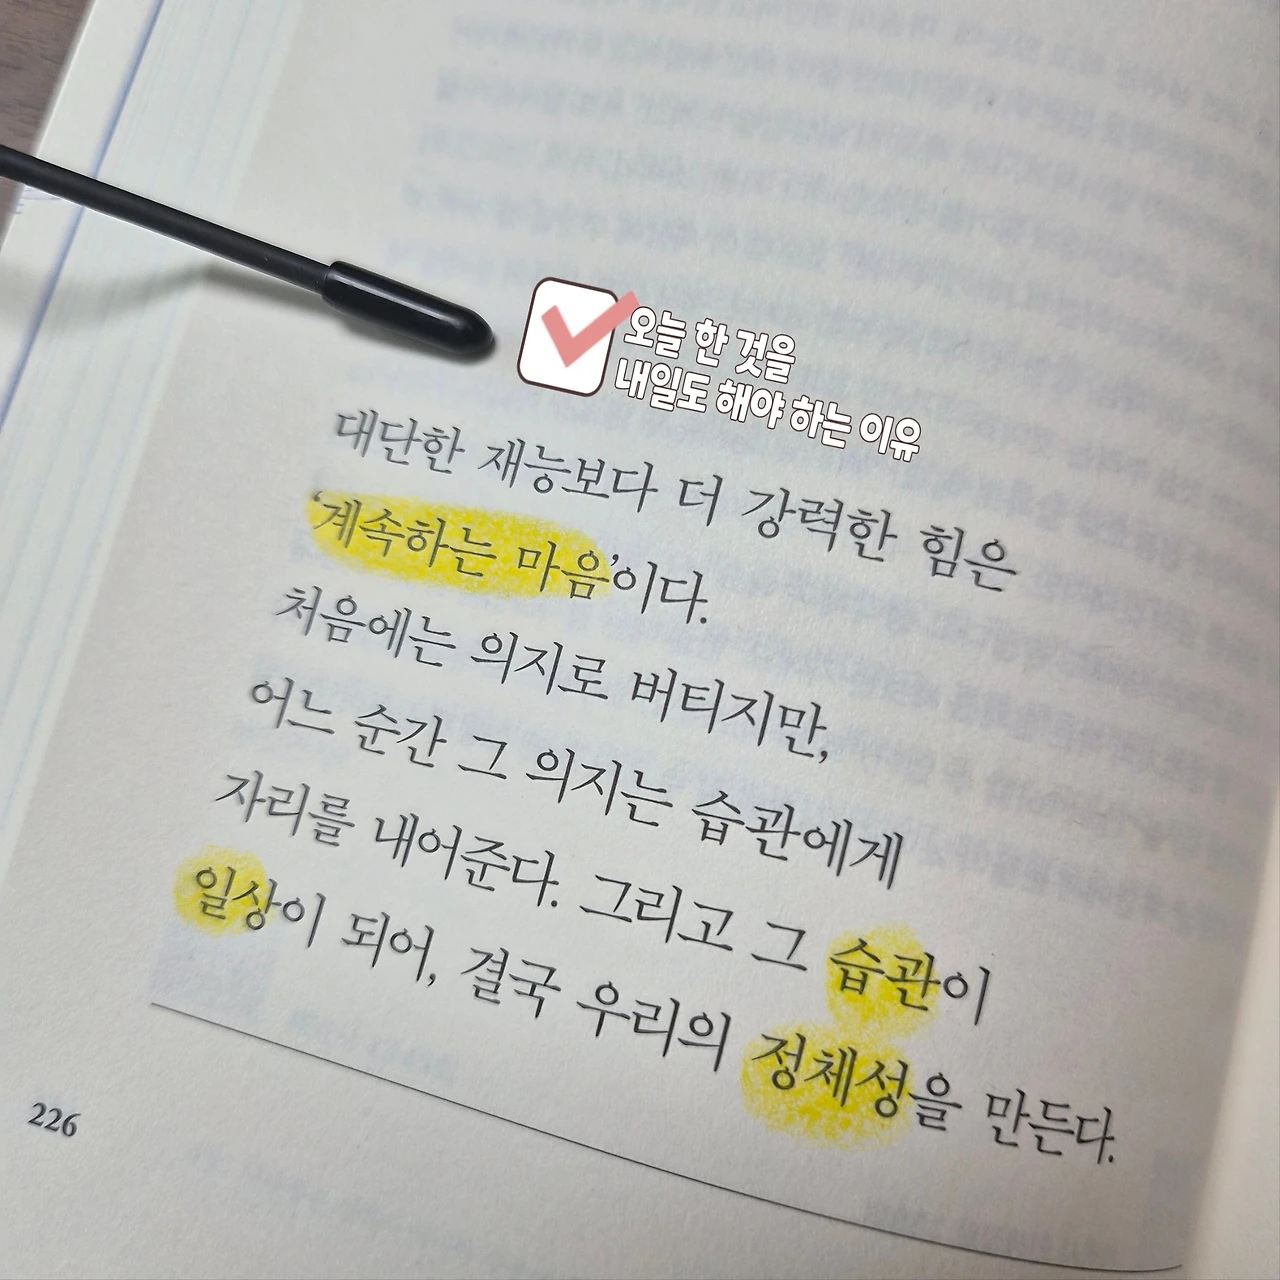 오늘 한 것을
내일도 해야 하는 이유
대단한 재능보다 더 강력한 힘은
‘계속하는 마음’이다.
처음에는 의지로 버티지만,
어느 순간 그 의지는 습관에게
자리를 내어준다. 그리고 그 습관이
일상이 되어, 결국 우리의 정체성을 만든다.
226